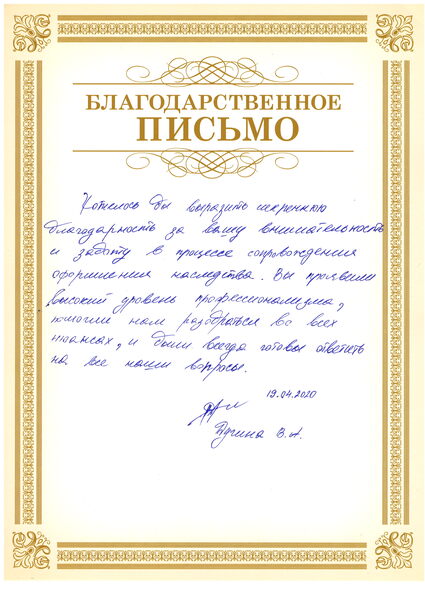 БЛАГОДАРСТВЕННОЕ
ПИСЬМО
Хотелось бы выразить искреннюю
благодарность за вашу внимательность
и заботу в процессе сопровождения
оформления наследства. Вы проявили
высокий уровень профессионализма,
помогли нам разобраться во всех
нюансах, и были всегда готовы ответить
на все наши вопросы.
19.04.2020
Пугина В.А.